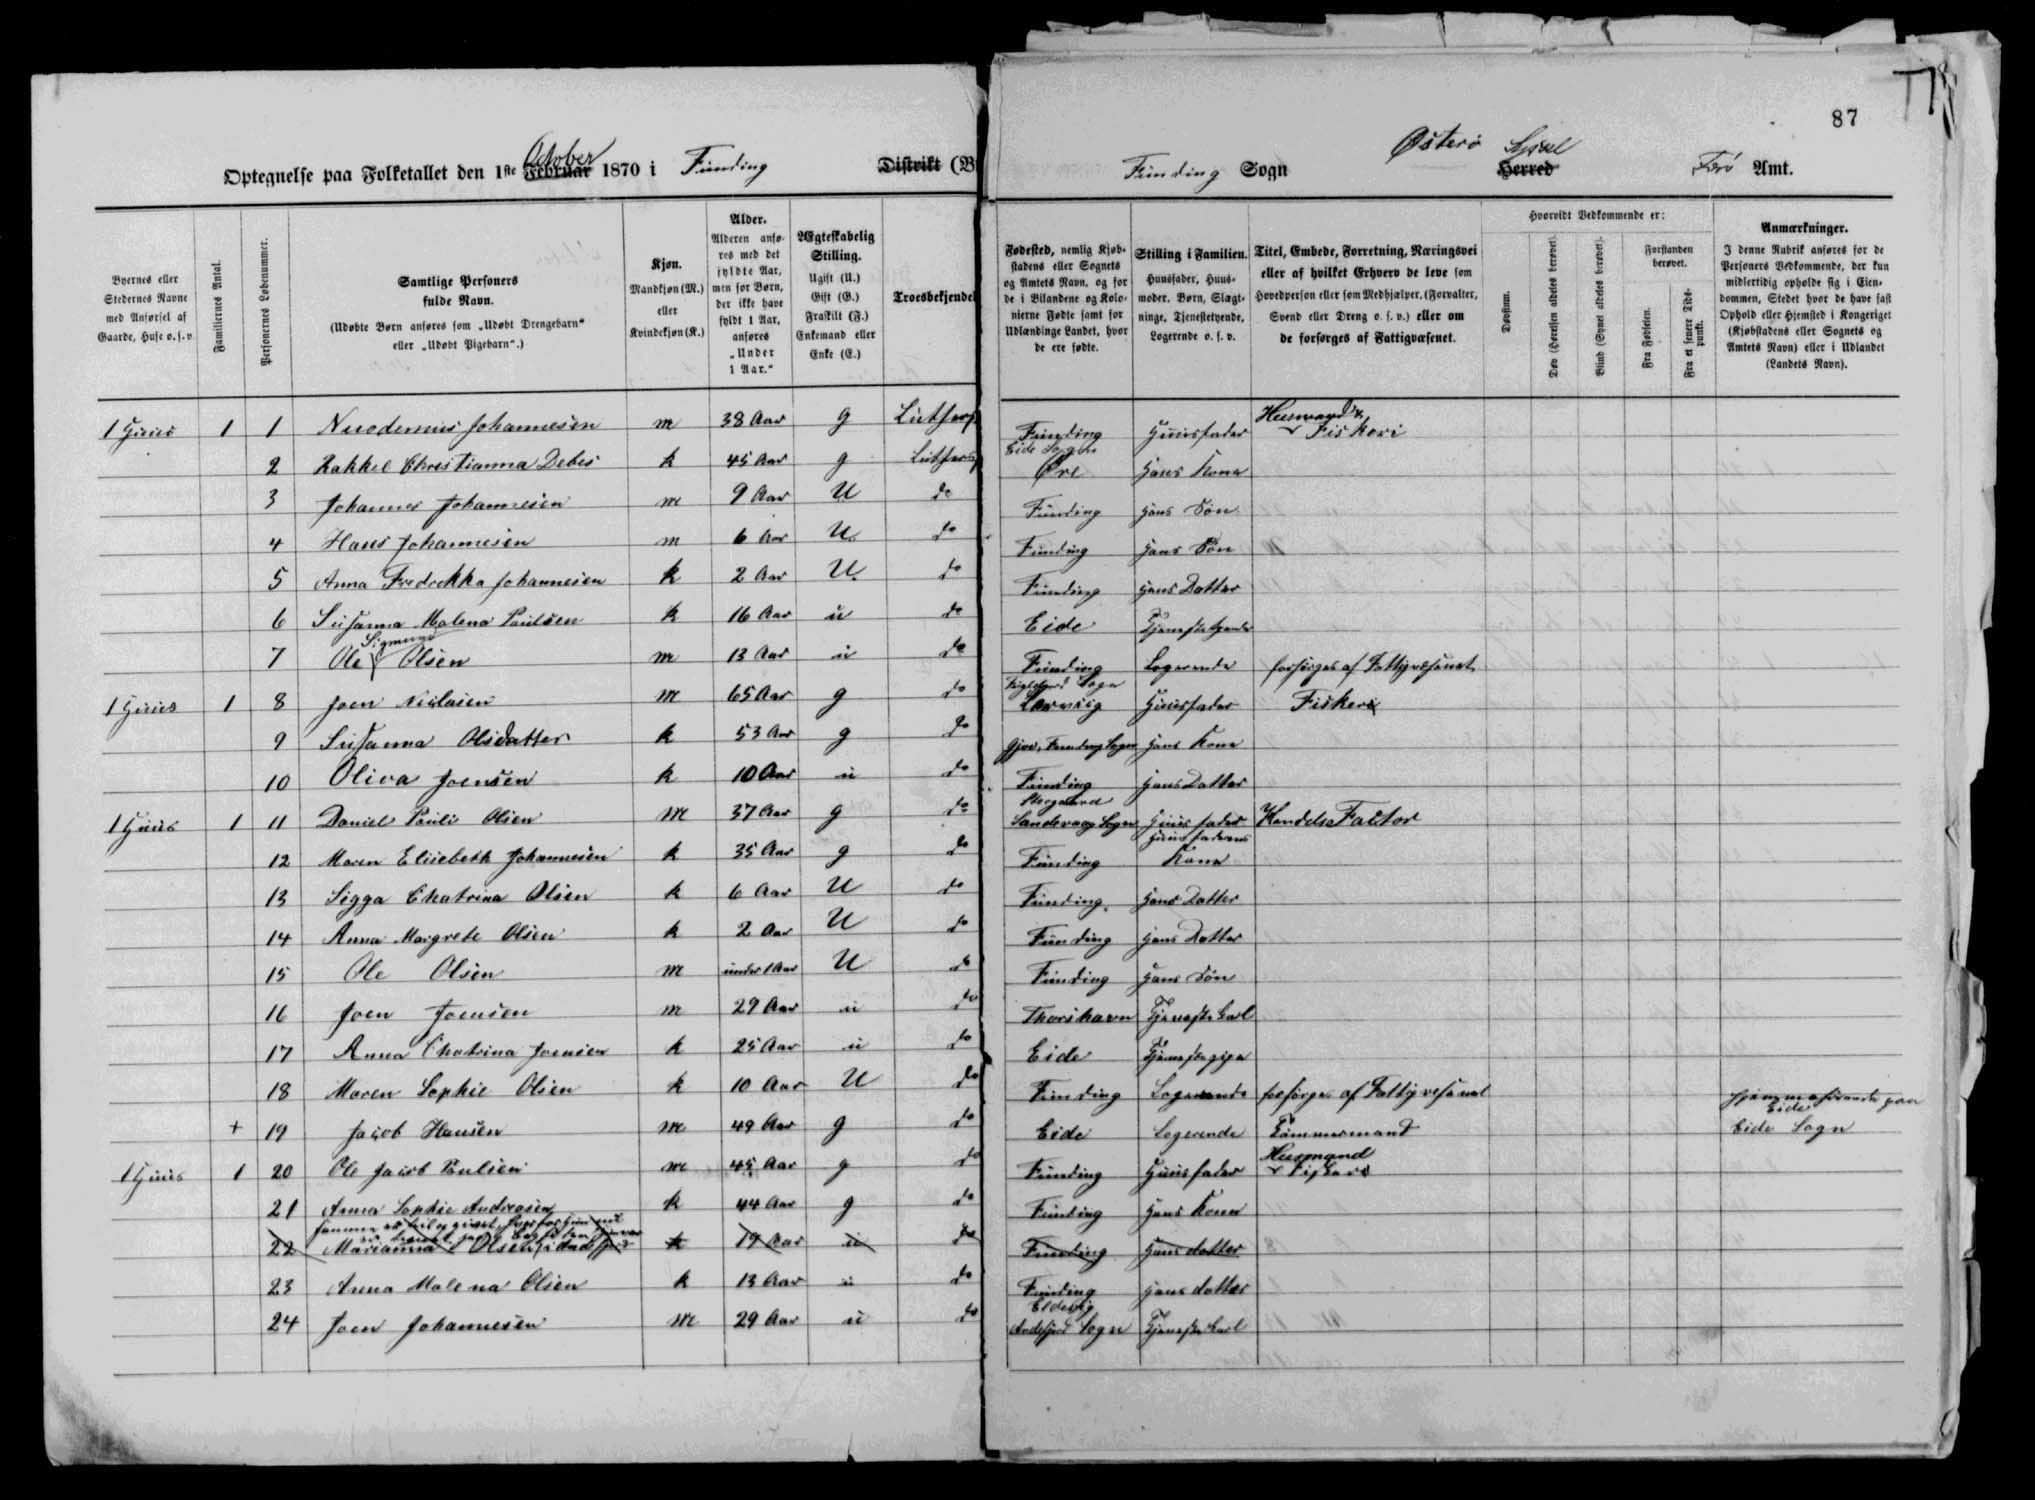 87
Optegnelse paa Folketallet den 1ste Februar October 1870 i Funding Distrikt (B
Funding Sogn Østerø Herred Syssel Færø Amt.
Byernes eller Stedernes Navne med Anførsel af Gaarde, Huse o. s. v.
Familiernes Antal.
Personernes Løbenummer.
Samtlige Personers fulde Navn.
(Udøbte Børn anføres som „Udøbt Drengebarn“ eller „Udøbt Pigebarn“.)
Kjøn.
Mandkjøn (M.) eller Kvindekjøn (K.)
Alder.
Alderen anføres med det fyldte Aar, men for Børn, der ikke have fyldt 1 Aar, anføres „Under 1 Aar.“
Ægteskabelig Stilling.
Ugift (U.) Gift (G.) Fraskilt (F.) Enkemand eller Enke (E.)
Troesbekjendel
Fødested, nemlig Kjøbstadens eller Sognets og Amtets Navn, og for de i Bilandene og Kolonierne Fødte samt for Udlændinge Landet, hvor de ere fødte.
Stilling i Familien.
Huusfader, Huusmoder, Børn, Slægtninge, Tjenestetyende, Logerende o. s. v.
Titel, Embede, Forretning, Næringsvei eller af hvilket Erhverv de leve som Hovedperson eller som Medhjælper, (Forvalter, Svend eller Dreng o. s. v.) eller om de forsørges af Fattigvæsenet.
Hvorvidt Vedkommende er:
Døvstum.
Døv (Hørelsen aldeles berøvet).
Blind (Synet aldeles berøvet).
Forstanden berøvet.
Fra Fødselen.
Fra et senere Tidspunkt.
Anmærkninger.
I denne Rubrik anføres for de Personers Vedkommende, der kun midlertidig opholde sig i Eiendommen, Stedet hvor de have fast Ophold eller Hjemsted i Kongeriget (Kjøbstadens eller Sognets og Amtets Navn) eller i Udlandet (Landets Navn).
1 Huus 1 1 Johannesen m 38 Aar g Luthersk Funding Huusfader Husmand Fiskeri
2 Rakkel Christianna Debes k 45 Aar g Luthersk Eide Sogn Øre Hans Kone
3 Johannes Johannesen m 9 Aar U do Funding Hans Søn
4 Hans Johannesen m 6 Aar U. do Funding Hans Søn
5 Anna Fredrekka Johannesen k 2 Aar U. do Funding Hans Datter
6 Susanna Malena Poulsen k 16 Aar u do Eide Tjenestetyende
7 Ole Sigmund Olsen m 13 Aar u do Funding Logerende forsørges af Fattigvæsenet
1 Huus 1 8 Joen Niclasen m 65 Aar g do Sogn Huusfader Fisker
9 Susanna Olsdatter k 53 Aar g do Gjov, Funding Sogn Hans Kone
10 Oliva Joensen k 10 Aar u do Funding Hans Datter
1 Huus 1 11 Daniel Pauli Olsen m 37 Aar g do Sandevaag Sogn Huusfader Handels Factor
12 Maren Elisebeth Johannesen k 35 Aar g do Funding Huusfaderens Kone
13 Sigga Chatrina Olsen k 6 Aar U do Funding. Hans Datter
14 Anna Margrete Olsen k 2 Aar U do Funding Hans Datter
15 Ole Olsen m under 1 Aar U do Funding Hans Søn
16 Joen Joensen m 29 Aar u do Thorshavn Tjenestekarl
17 Anna Chatrina Joensen k 25 Aar u do Eide Tjenestepige
18 Maren Sophie Olsen k 10 Aar U do Funding Logerende forsørges af Fattigvesenet
+ 19 Jacob Hansen m 49 Aar g do Eide Logerende Tømmermand Hjemmehørende paa Eide Eide Sogn
1 Huus 1 20 Ole Jacob Poulsen m 45 Aar g do Funding Huusfader Husmand Fisker
21 Anna Sophie Andreasen k 44 Aar g do Funding Hans Kone
22 Marianna Olsen k 19 Aar u do Funding Hans datter
23 Anna Malena Olsen k 13 Aar u do Funding Hans datter
24 Joen Johannesen m 29 Aar u do Eldevig Andefjord Sogn Tjenestekarl